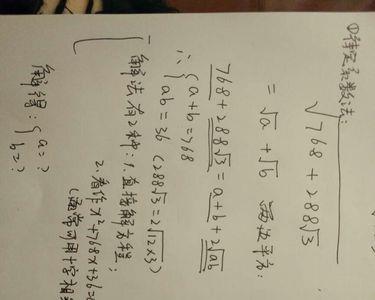 ①待定系数法:
√768+288√3
=√a+√b 两边平方:
768+288√3=a+b+2√ab
∴{a+b=768
ab=36 (288√3=2√12×3)
解法有2种:1.直接解方程;
2.看作x²+768x+36=0
(通常可用十字相
解得:{a=?
b=?